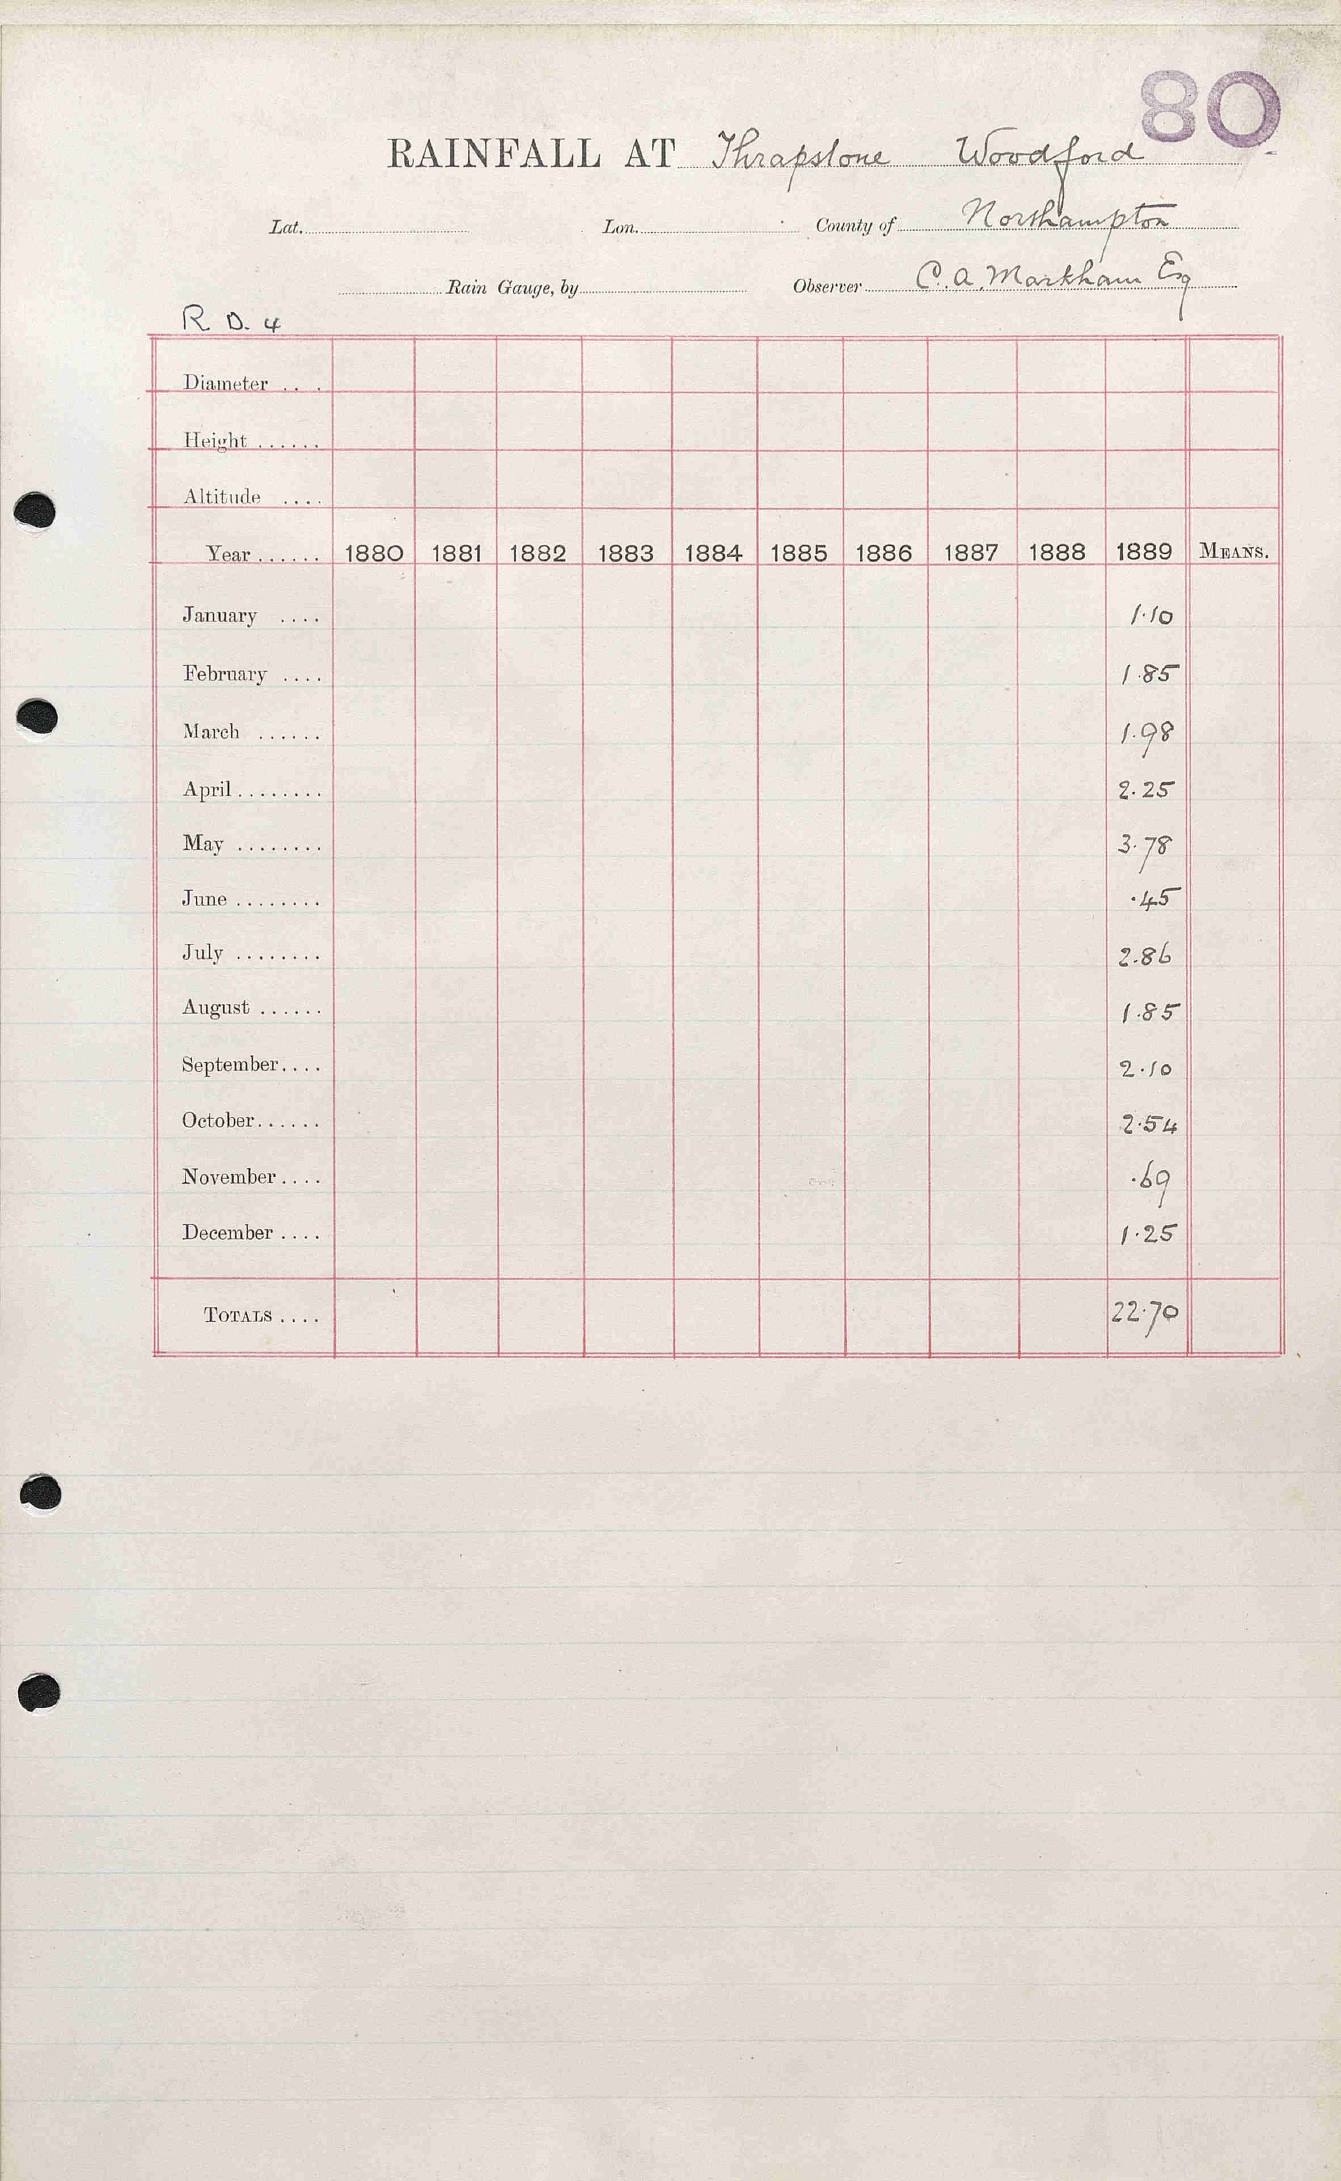 80
RAINFALL AT Thrapstone Woodford
Lat. Lon. County of Northampton
Rain Gauge, by Observer C. A. Markham Esq
R D. 4
Diameter . . .
Height ......
Altitude ....
Year ...... 1880 1881 1882 1883 1884 1885 1886 1887 1888 1889 MEANS.
January .... 1.10
February .... 1.85
March ...... 1.98
April ........ 2.25
May ........ 3.78
June ........ .45
July ........ 2.86
August ...... 1.85
September .... 2.10
October ...... 2.54
November .... .69
December .... 1.25
TOTALS .... 22.70